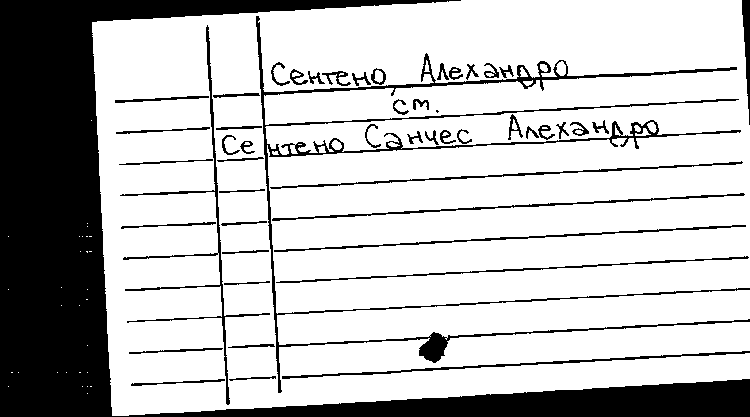 Сентено, Алехандро
см.
Сентено Санчес Алехандро